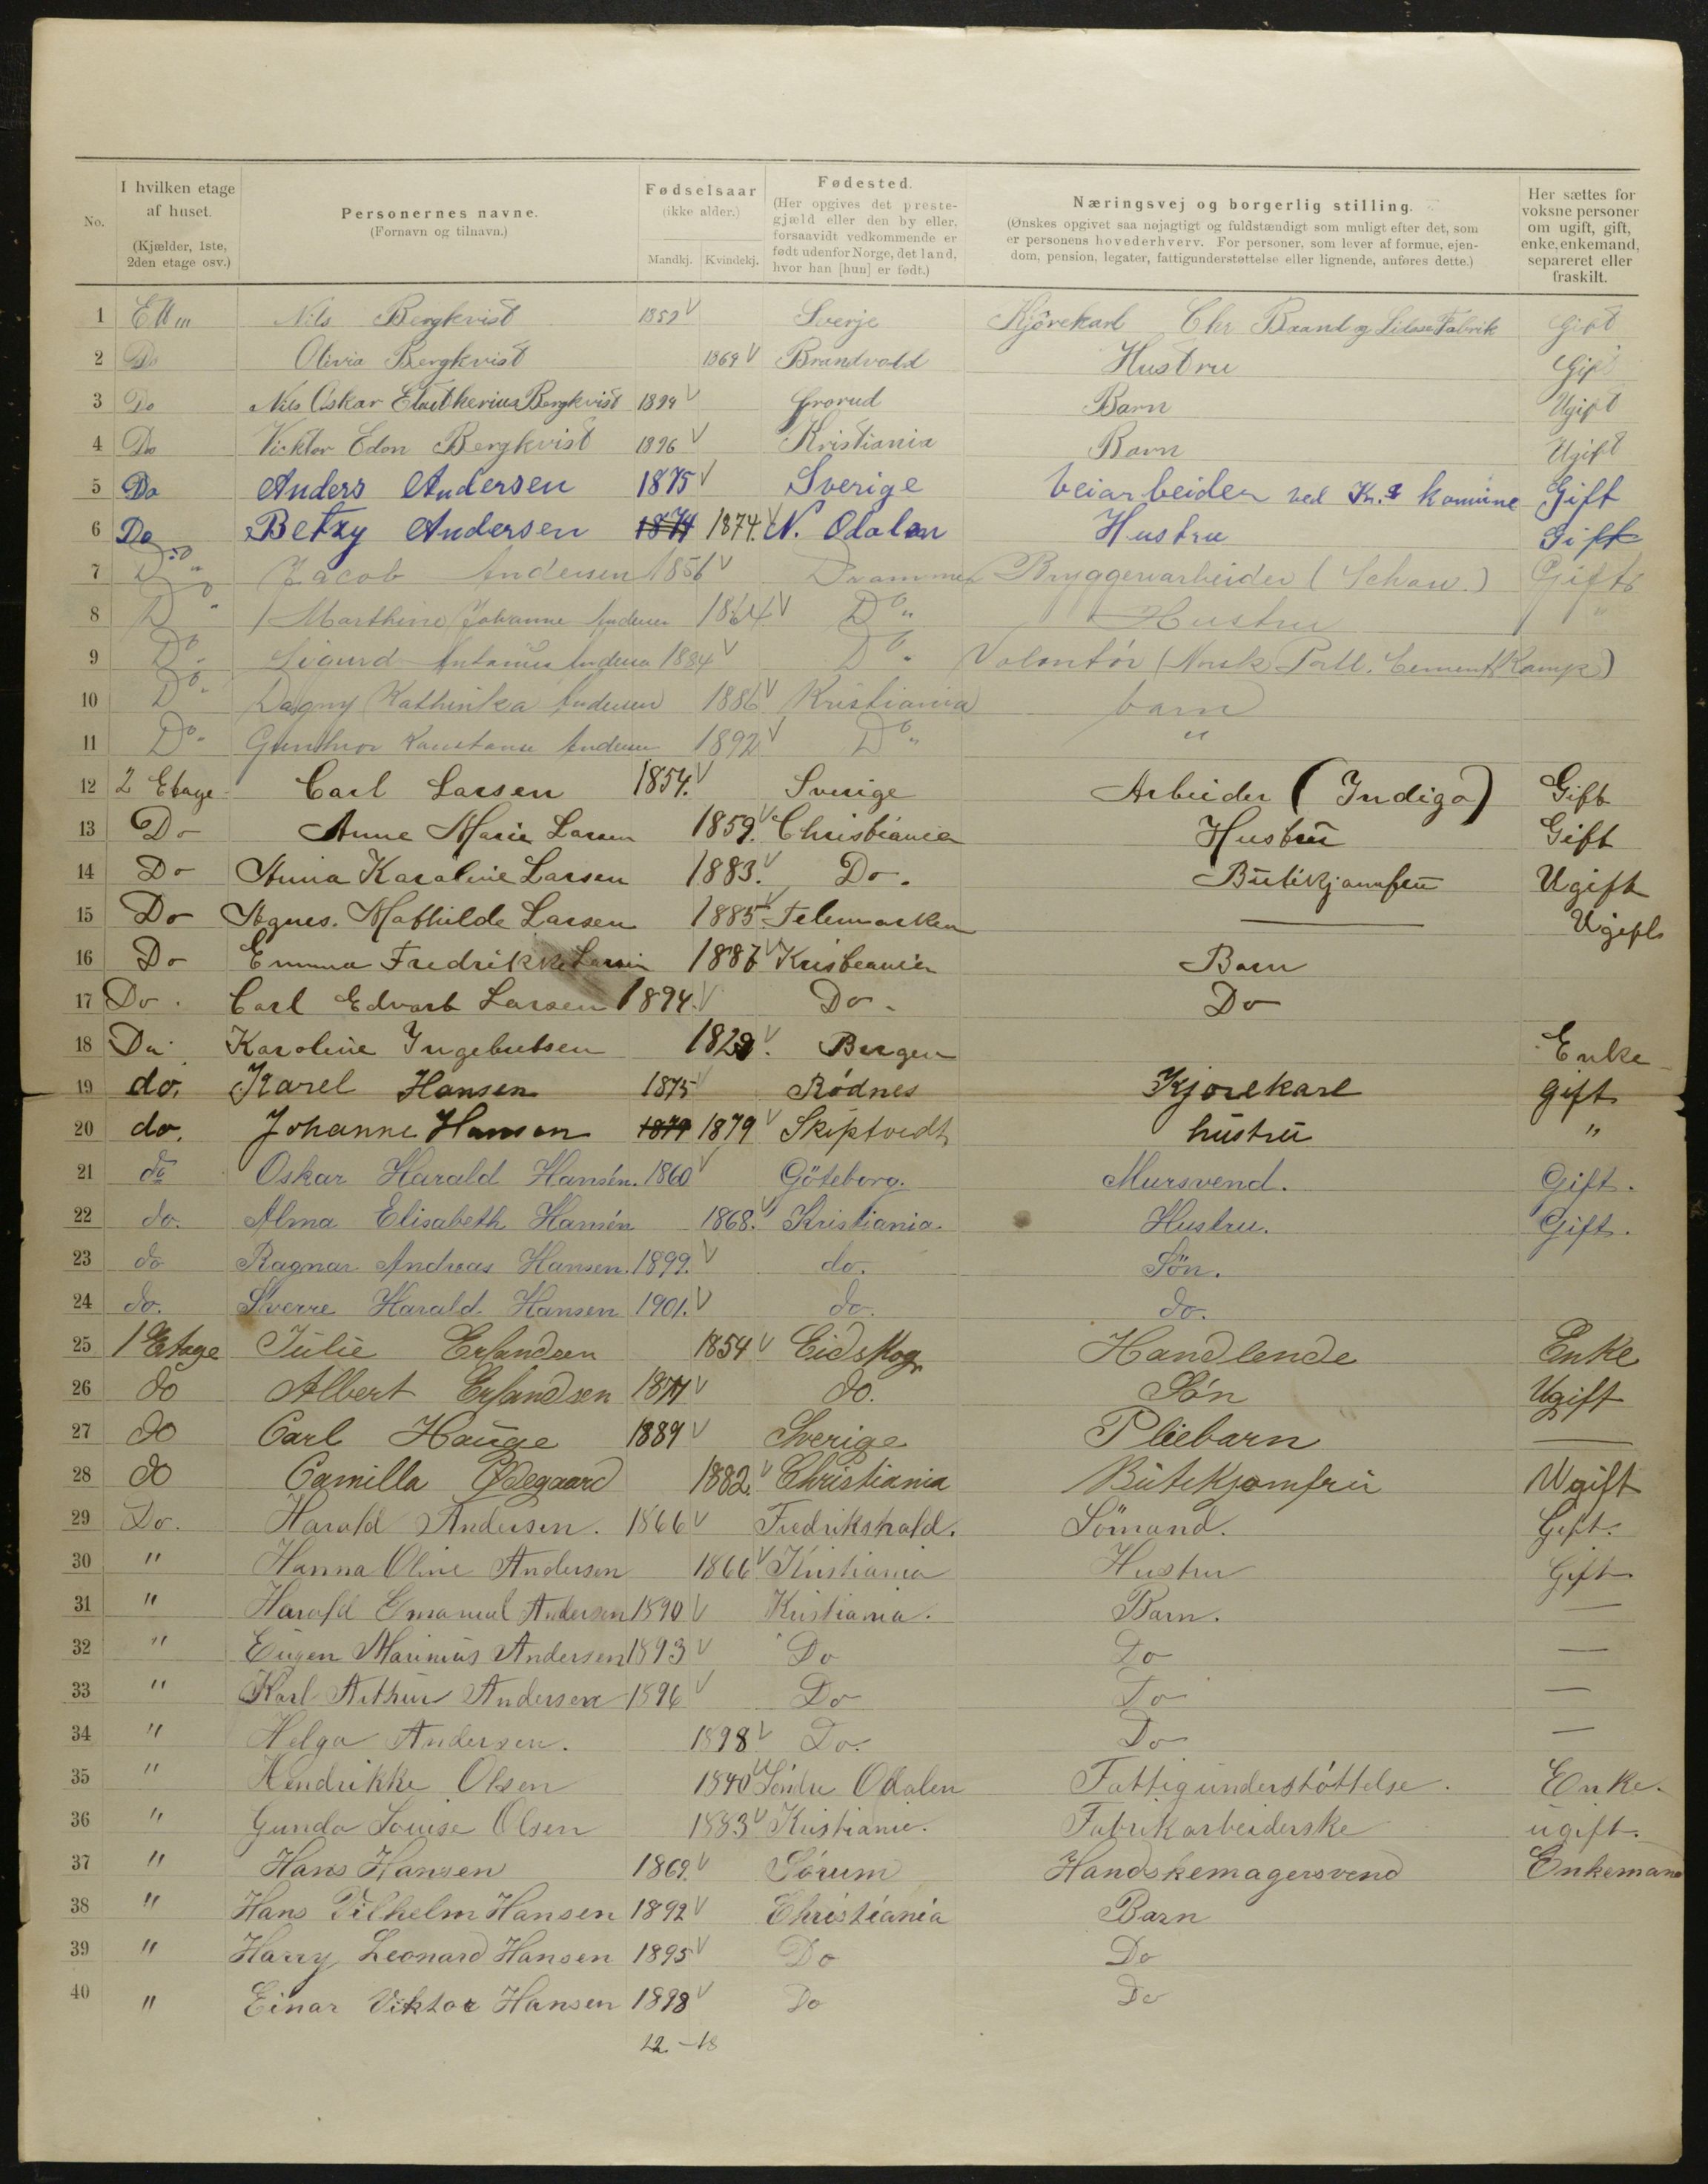 No.
I hvilken etage af huset. (Kjælder, 1ste, 2den etage osv.)
Personernes navne. (Fornavn og tilnavn.)
Fødselsaar (ikke alder.) Mandkj. Kvindekj.
Fødested. (Her opgives det prestegjæld eller den by eller, forsaavidt vedkommende er født udenfor Norge, det land, hvor han [hun] er født.)
Næringsvej og borgerlig stilling. (Ønskes opgivet saa nøjagtigt og fuldstændigt som muligt efter det, som er personens hovederhverv. For personer, som lever af formue, ejendom, pension, legater, fattigunderstøttelse eller lignende, anføres dette.)
Her sættes for voksne personer om ugift, gift, enke, enkemand, separeret eller fraskilt.
1 Nils Bergkvist Sverje Kjörekarl Chr Brand Fabrik Gift
2 Do Olivia Bergkvist 1869 Brandvold Hustru Gift
3 Do Nils Oskar Bergkvist 1894 Grorud Barn Ugift
4 Do Vicktor Edon Bergkvist 1896 Kristiania Barn Ugift
5 Do Anders Andersen 1875 Sverige Veiarbeider ved Kr.a komune Gift
6 Do Betzy Andersen 1874 1874. N. Odalen Hustru Gift
7 Do " Jacob Andersen 1856 Drammen Bryggeriarbeider (Schou.) Gift
8 Do " Marthine Johanne Andersen 1864 Do " Hustru "
9 Do " Sigurd Antonius Andersen 1884 Do " Volontör (Norsk Portl. Cement Komp)
10 Do " Dagny Kathinka Andersen 1886 Kristiania barn
11 Do " Gunthor Konstanse Andersen 1892 Do " "
12 2 Etage Carl Larsen 1854. Sverige Arbeider (Indigo) Gift
13 Do Anne Marie Larsen 1859. Christiania Hustru Gift
14 Do Anna Karoline Larsen 1883. Do. Butikjomfru Ugift
15 Do Agnes. Mathilde Larsen 1885 Telemarken — Ugift
16 Do Emma Fredrikke Larsen 1886 Kristiania Barn
17 Do. Carl Edvart Larsen 1894. Do. Do
18 Do Karoline Ingebretsen Bergen Enke
19 do. Karel Hansen 1875 Rödnes Kjorekarl gift
20 do. Johanne Hansen 1879 1879 Skiptvedt hustru "
21 do Oskar Harald Hansén. 1860 Göteborg. Mursvend. Gift.
22 do. Alma Elisabeth Hansén 1868. Kristiania. Hustru. Gift.
23 do Ragnar Andreas Hansen. 1899. do. Sön.
24 do. Sverre Harald Hansen 1901. do. do.
25 1 Etage Julie Erlandsen 1854 Eidskog Handlende Enke
26 do Albert Erlandsen do. Sön Ugift
27 do Carl Hauge 1889 Sverige Pliebarn —
28 do Camilla Ødegaard 1882. Christiania Butikjomfru Ugift
29 Do. Harald Andersen. 1866 Fredrikshald. Sömand. Gift.
30 " Hanna Oline Andersen 1866 Kristiania Hustru Gift
31 " Harald Emanuel Andersen 1890 Kristiania. Barn. —
32 " Eugen Marinius Andersen 1893 Do Do —
33 " Karl Arthur Andersen 1896 Do Do —
34 " Helga Andersen. 1898 Do. Do —
35 " Hendrikke Olsen 1840 Söndre Odalen Fattigunderstöttelse. Enke.
36 " Gunda Louise Olsen 1883 Kristiania. Fabrikarbeiderske ugift.
37 " Hans Hansen 1869. Sörum Handskemagersvend Enkemand
38 " Hans Vilhelm Hansen 1892 Christiania Barn
39 " Harry Leonard Hansen 1895 Do Do
40 " Einar Viktor Hansen 1898 Do Do
22 — 18